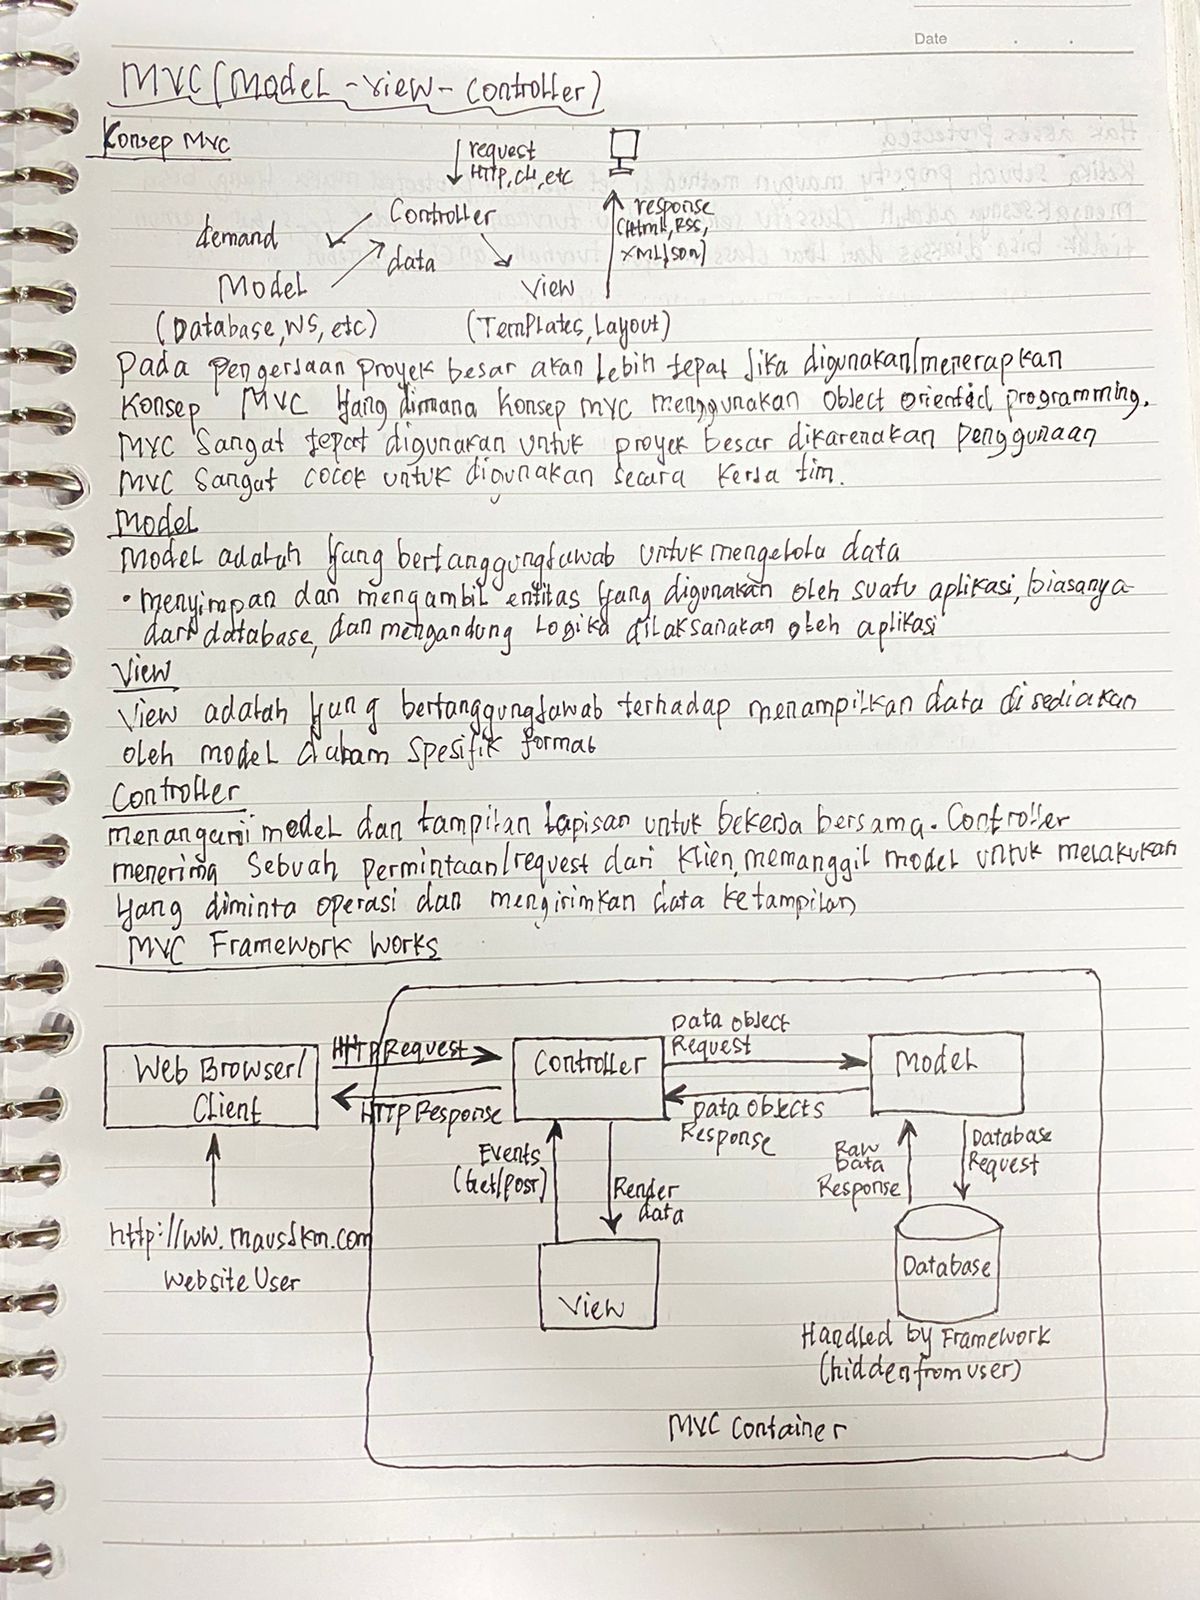 Date
MVC (Model - View - Controller)
Konsep MVC
request
HTTP, cli, etc
Controller
response
(Html, RSS,
XML, JSON)
demand
data
Model
View
(Database, WS, etc)
(Templates, Layout)
Pada pengerjaan proyek besar akan lebih tepat jika digunakan/menerapkan
Konsep MVC yang dimana konsep MVC menggunakan object oriented programming.
MVC Sangat tepat digunakan untuk proyek besar dikarenakan penggunaan
MVC Sangat cocok untuk digunakan secara kerja tim.
Model
Model adalah yang bertanggungjawab untuk mengelola data
• menyimpan dan mengambil entitas yang digunakan oleh suatu aplikasi, biasanya
dari database, dan mengandung logika dilaksanakan oleh aplikasi
View
View adalah yang bertanggungjawab terhadap menampilkan data disediakan
oleh model dalam spesifik format
Controller
menangani model dan tampilan lapisan untuk bekerja bersama. Controller
menerima Sebuah permintaan/request dari Klien, memanggil model untuk melakukan
yang diminta operasi dan mengirimkan data ketampilan
MVC Framework Works
Web Browser/
Client
HTTP Request
HTTP Response
Controller
Data Object
Request
Data Objects
Response
Model
Events
(Get/post)
Render
data
Raw
Data
Response
Database
Request
http://ww.mausjkm.com
Website User
View
Database
Handled by Framework
(hidden from user)
MVC Container